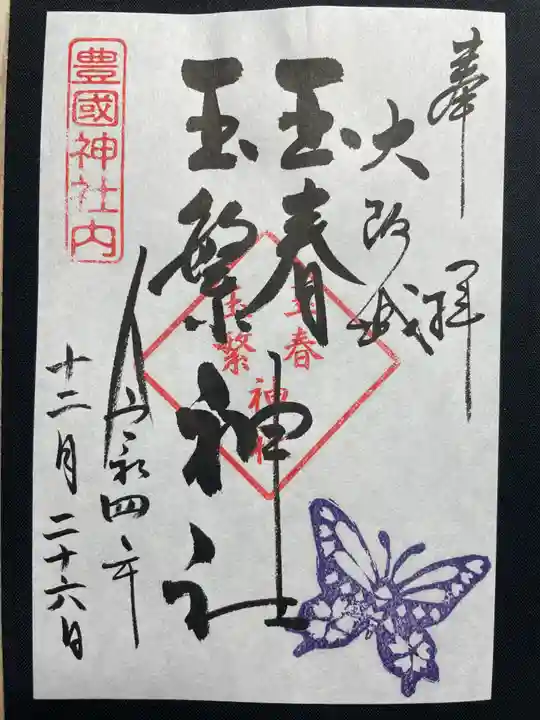 奉拝
大阪城
玉春
玉繁
神社
玉春
玉繁
神社
令和四年
十二月二十六日
豊國神社内